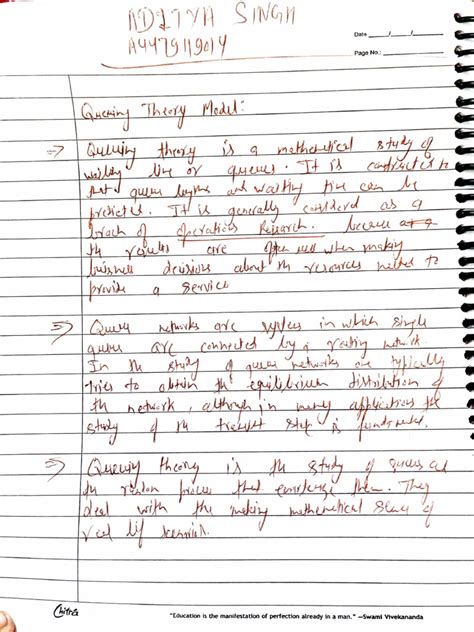 ADITYA SINGH
A4479119014
Date ___/___/___
Page No.:
Queuing Theory Model:
=> Queuing theory is a mathematical study of
waiting line or queues. It is constructed to
that queue lengths and waiting time can be
predicted. It is generally considered as a
brach of Operations Research. because
th results are often used when making
business decisions about th resources needed to
provide a service
=> Queue networks are systems in which single
queues are connected by a routing network.
In th study of queue networks one typically
tries to obtain th equilibrium distribution of
th network, although in many applications the
study of th state is fundamental.
=> Queuing theory is th study of queues as
th random process that them. They
deal with the making mathematical sense of
real lif scenarios.
Chitra
"Education is the manifestation of perfection already in a man." —Swami Vivekananda